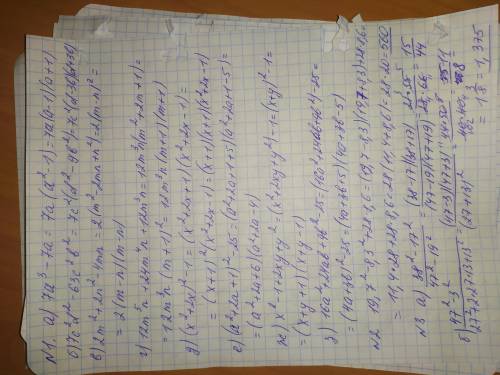 N1. а) 7a³-7a = 7a(a²-1) = 7a(a-1)(a+1)
б) 7c²d²-63c²b² = 7c²(d²-9b²) = 7c²(d-3b)(d+3b)
в) 2m²+2n²-4mn = 2(m²-2mn+n²) = 2(m-n)² =
= 2(m-n)(m-n)
г) 12m⁵n+24m⁴n+12m³n = 12m³n(m²+2m+1) =
= 12m³n(m+1)² = 12m³n(m+1)(m+1)
д) (x²+2x)²-1 = (x²+2x+1)(x²+2x-1) =
= (x+1)²(x²+2x-1) = (x+1)(x+1)(x²+2x-1)
е) (a²+2a+1)²-25 = (a²+2a+1+5)(a²+2a+1-5) =
= (a²+2a+6)(a²+2a-4)
ж) x²-1+2xy+y² = (x²+2xy+y²)-1 = (x+y)²-1 =
= (x+y+1)(x+y-1)
з) 16a²+24ab+9b²-25 = (16a²+24ab+9b²)-25 =
= (4a+3b)²-25 = (4a+3b+5)(4a+3b-5)
N2. 19,7²-8,3²+28·8,6 = (19,7-8,3)(19,7+8,3)+28·8,6 =
= 11,4·28+28·8,6 = 28(11,4+8,6) = 28·20 = 560
N3 а) (38²-17²)/(47²-19²) = (38-17)(38+17)/(47-19)(47+19) = 21·55/28·66 = 15